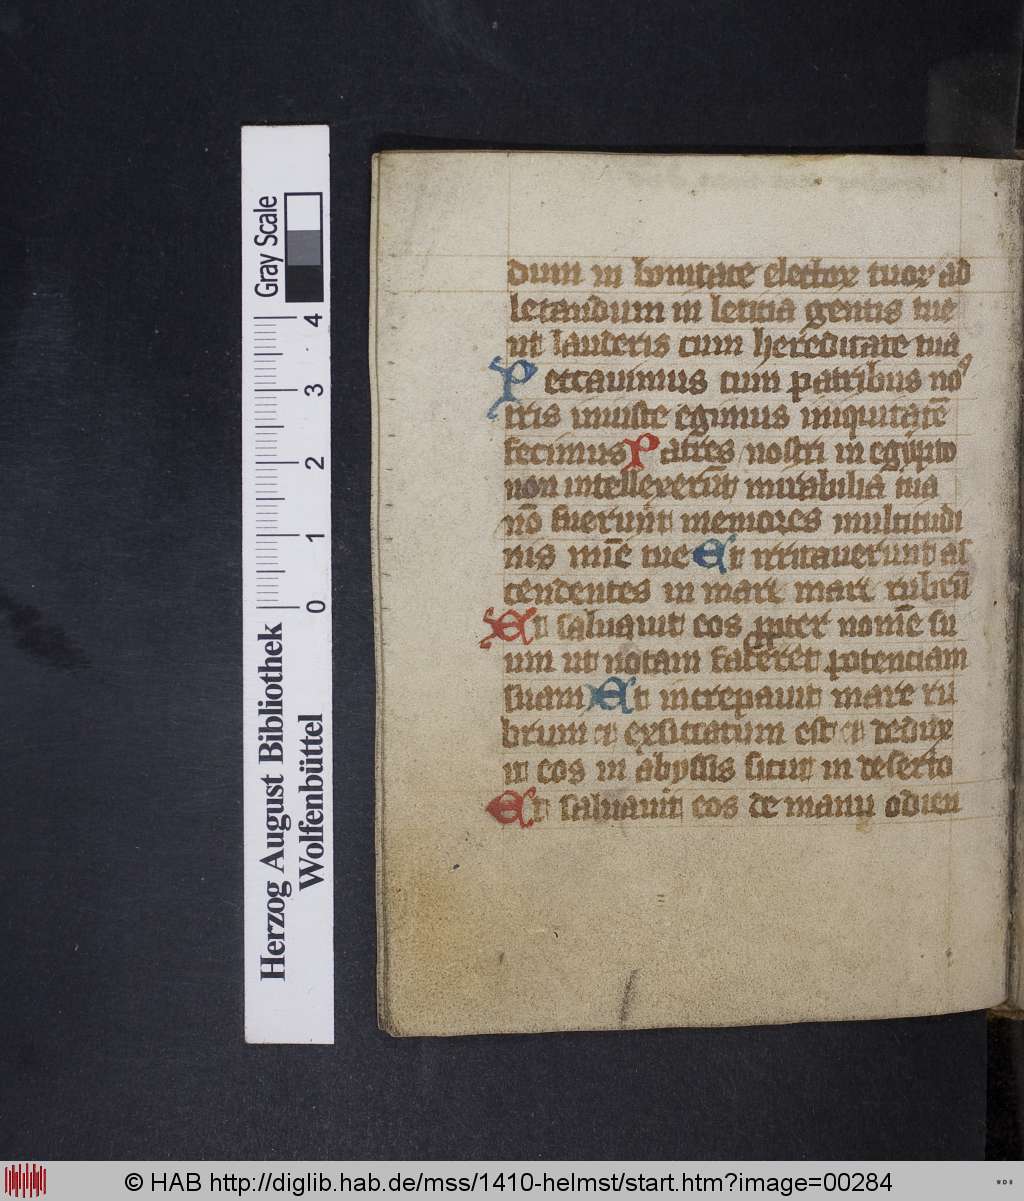 dum in bonitate electoꝝ tuoꝝ ad
letandum in leticia gentis tue
ut lauderis cum hereditate tua
Peccauimus cum patribus noſ
tris iniuste egimus iniquitatē
fecimus Patres nostri in egypto
non intellexerūt mirabilia tua
nō fuerunt memores multitudi
nis mīe tue Et irritauerunt aſ
cendentes in mare mare rubrū
Et saluauit eos ꝓpter nomē su
um ut notam faceret potenciam
suam Et increpauit mare ru
brum et exsiccatum est et dedux
it eos in abyssis sicut in deserto
Et saluauit eos de manu odien
Gray Scale
0 1 2 3 4
Herzog August Bibliothek
Wolfenbüttel
© HAB http://diglib.hab.de/mss/1410-helmst/start.htm?image=00284